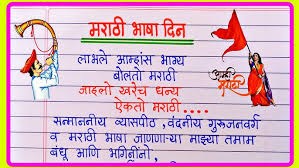 मराठी भाषा दिन
लाभले आम्हांस भाग्य
बोलतो मराठी
जाहलो खरेच धन्य
ऐकतो मराठी....
सन्माननीय व्यासपीठ, वंदनीय गुरूजनवर्ग
व मराठी भाषा जाणणाऱ्या माझ्या तमाम
बंधू आणि भगिनींनो,